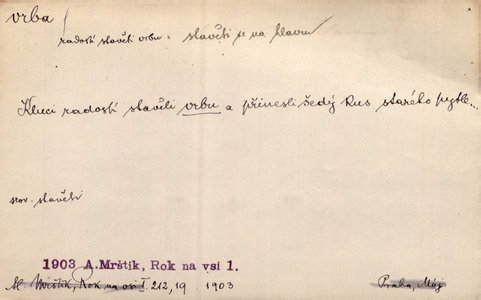 vrba
radostí stavěti vrbu = stavěti se na hlavu
Kluci radostí stavěli vrbu a přinesli šedý kus starého pytle...
srov. stavěti
1903 A.Mrštík, Rok na vsi 1.
Al. Mrštík, Rok na vsi I. 212, 19 1903 Praha, Máj